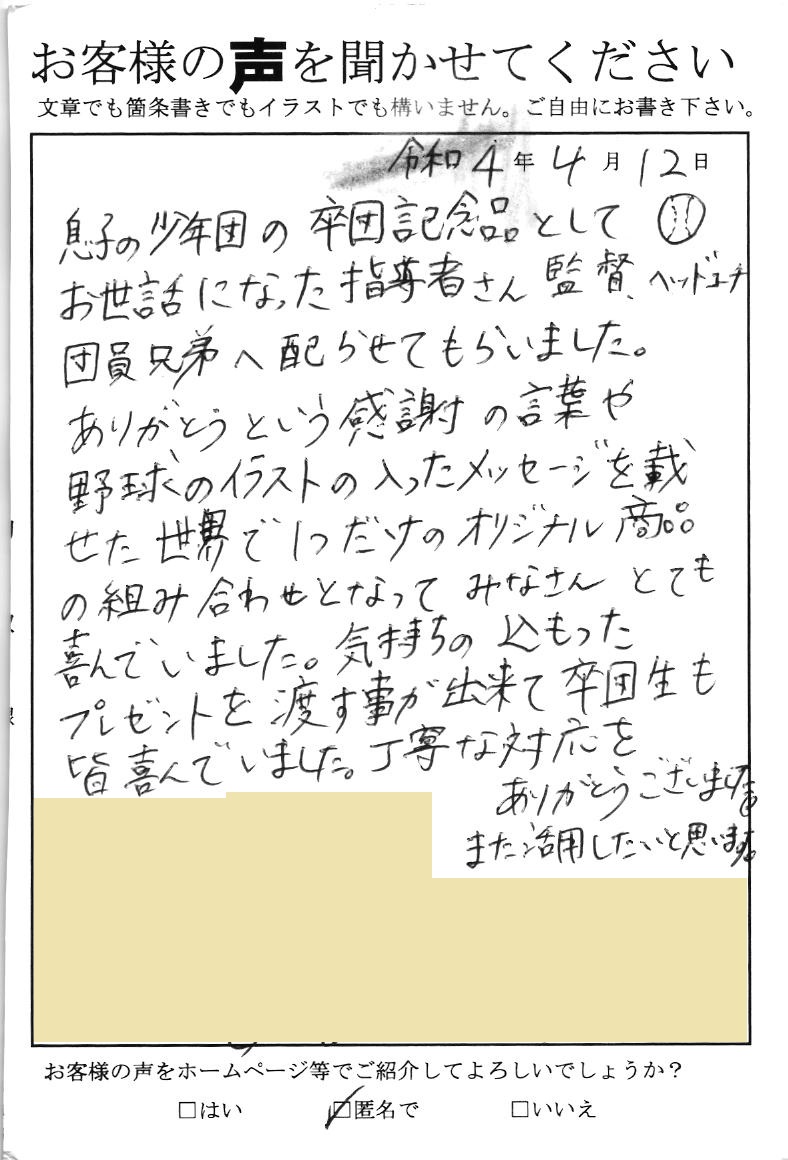 お客様の声を聞かせてください
文章でも箇条書きでもイラストでも構いません。ご自由にお書き下さい。
令和4年4月12日
息子の少年団の卒団記念品として
お世話になった指導者さん 監督、ヘッドコーチ
団員兄弟へ配らせてもらいました。
ありがとうという感謝の言葉や
野球のイラストの入ったメッセージを載
せた世界で1つだけのオリジナル商品
の組み合わせとなってみなさんとても
喜んでいました。気持ちの込もった
プレゼントを渡す事が出来て卒団生も
皆喜んでいました。丁寧な対応を
ありがとうございました。
また活用したいと思います。
お客様の声をホームページ等でご紹介してよろしいでしょうか？
□はい ☑匿名で □いいえ